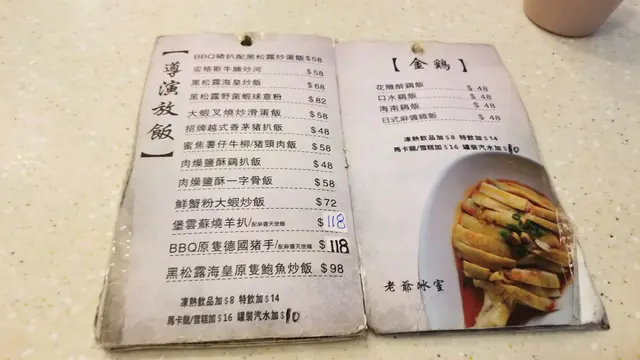 【導演放飯】
BBQ豬扒配黑松露炒蛋飯 $58
安格斯牛腩炒河 $58
黑松露海皇炒飯 $68
黑松露野菌蝦球意粉 $82
大蝦叉燒炒滑蛋飯 $58
招牌越式香茅豬扒飯 $48
蜜焦薯仔牛柳/豬頸肉飯 $58
肉燥鹽酥鷄扒飯 $48
肉燥鹽酥一字骨飯 $58
鮮蟹粉大蝦炒飯 $72
堡雲蘇燒羊扒/配麻醬天使麵 $118
BBQ原隻德國豬手/配麻醬天使麵 $118
黑松露海皇原隻鮑魚炒飯 $98
凍熱飲品加$8 特飲加$14
馬卡龍/雪糕加$16 罐裝汽水加$10
【金鷄】
花雕醉鷄飯 $ 48
口水鷄飯 $ 48
海南鷄飯 $ 48
日式麻醬鷄飯 $ 48
凍熱飲品加$8 特飲加$14
馬卡龍/雪糕加$16 罐裝汽水加$10
老爺冰室